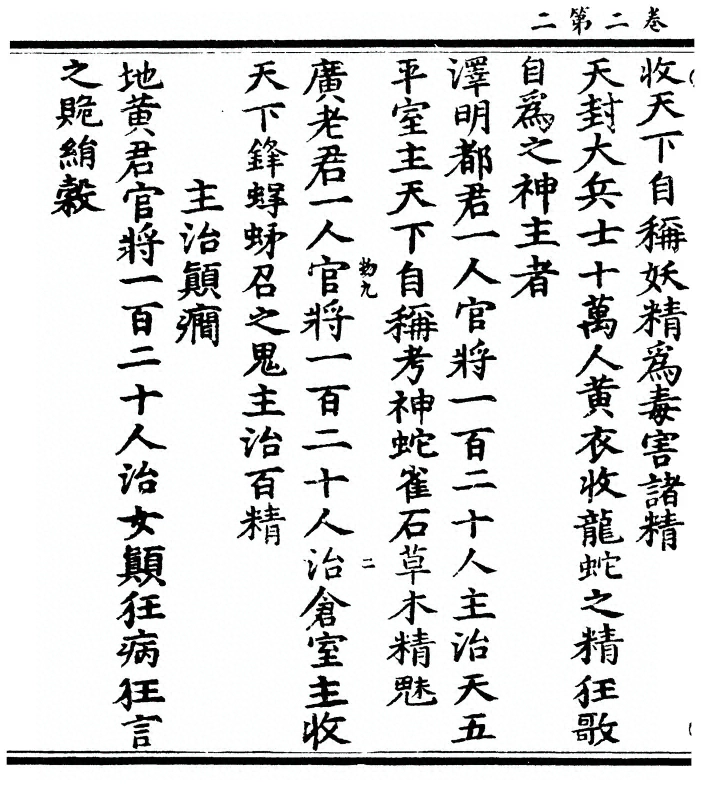 卷二第二
收天下自稱妖精爲毒害諸精
天封大兵士十萬人黄衣收龍蛇之精狂歌
自爲之神主者
澤明都君一人官將一百二十人主治天五
平室主天下自稱考神蛇雀石草木精魅
廣老君一人官將一百二十人治倉室主收
物九
二
天下鋒蜉蛢召之鬼主治百精
主治顛癇
地黄君官將一百二十人治女顛狂病狂言
之䞈絹縠